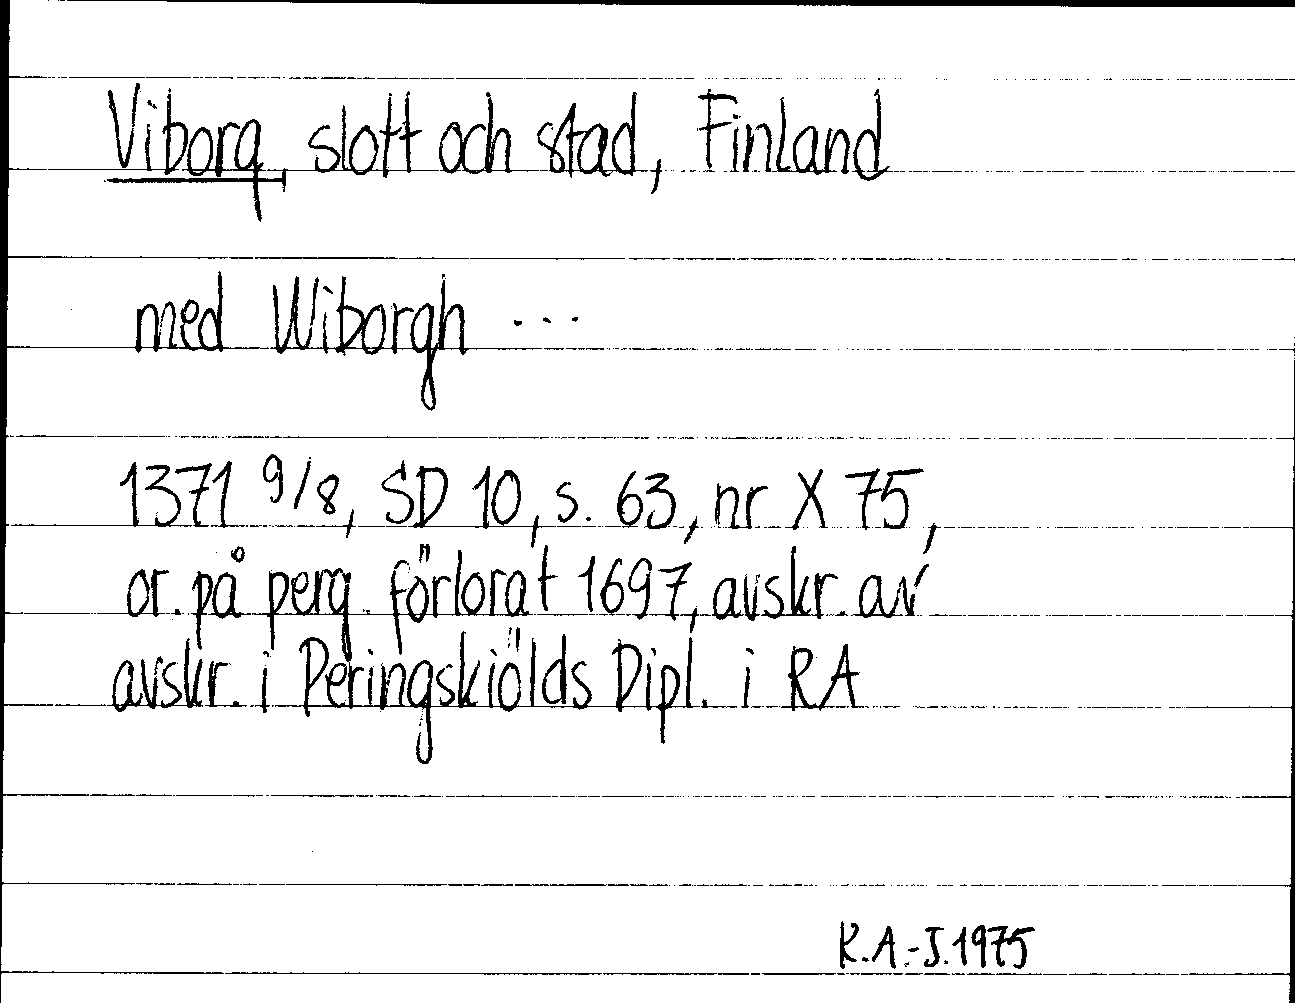 Viborg, slott och stad, Finland
med Wiborgh ...
1371 9/8, SD 10, s. 63, nr X 75,
or. på perg. förlorat 1697, avskr. av
avskr. i Peringskiölds Dipl. i RA
K.A.-J. 1975